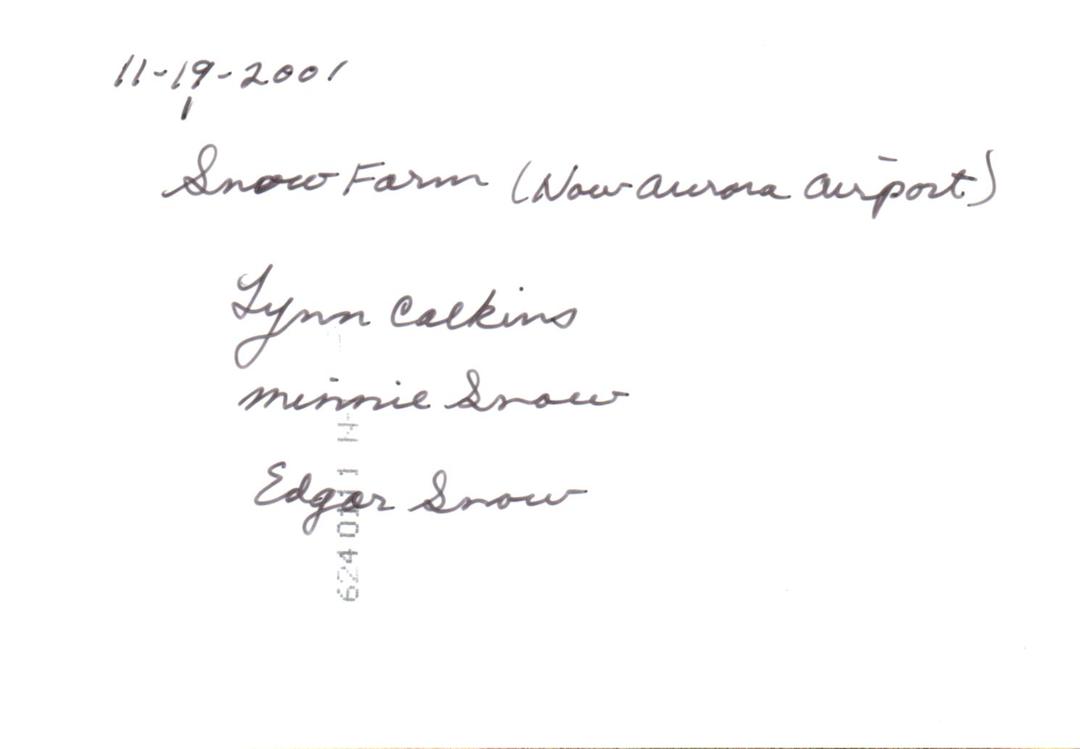 11-19-2001
Snow Farm (Now Aurora Airport)
Lynn Calkins
Minnie Snow
Edgar Snow